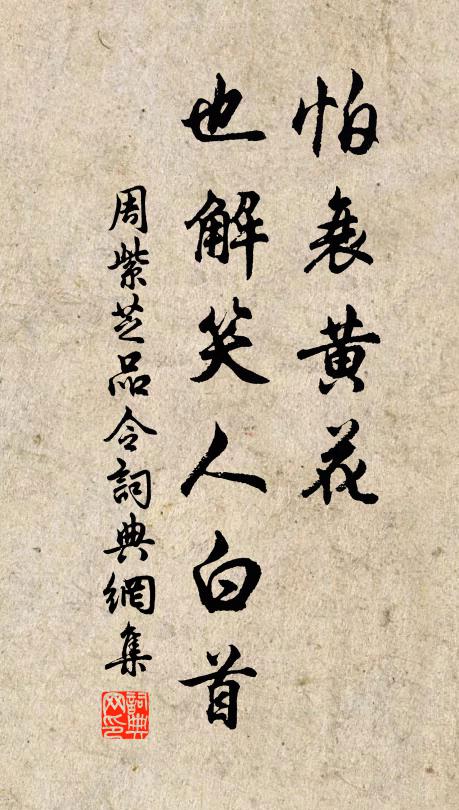 怕衰黄花
也解笑人白首
周紫芝品令詞典網集
詞典网印